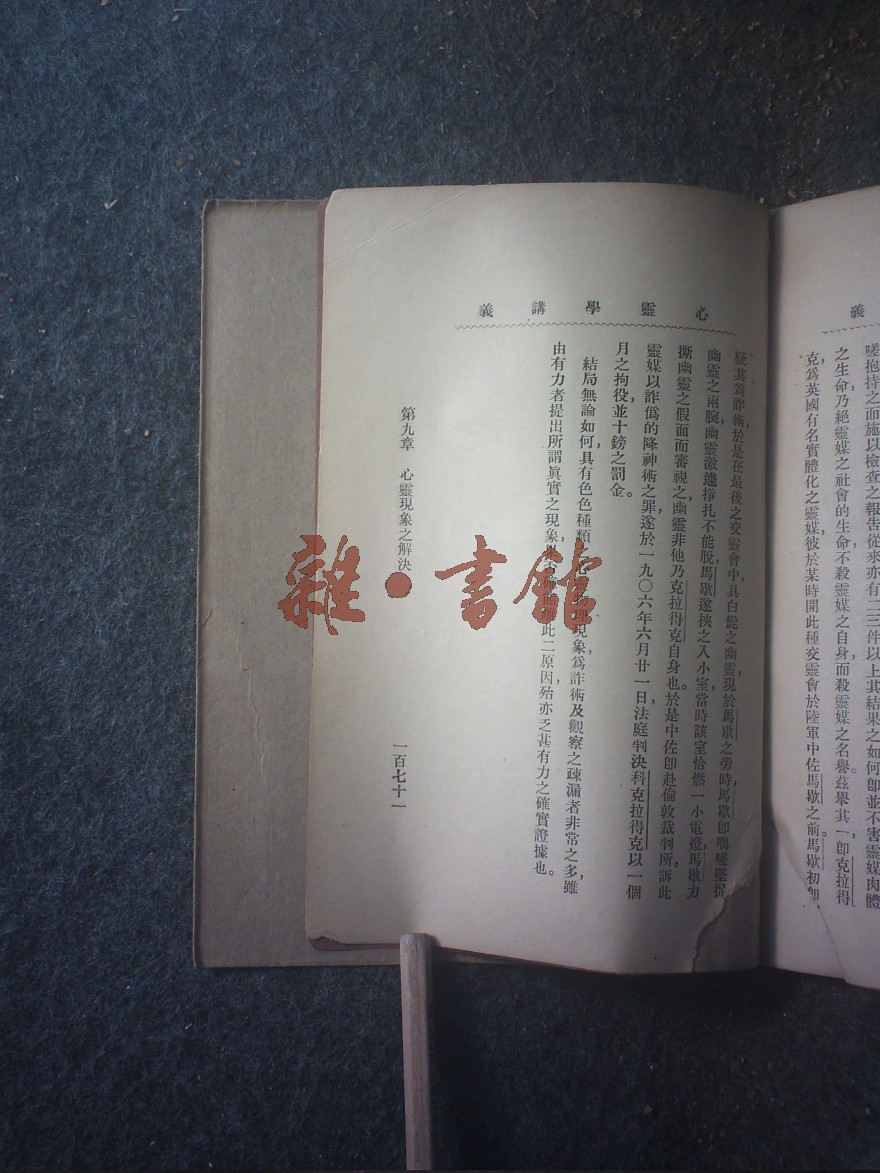 義
嗟抱持之而施以檢查之報告從來亦有二三件以上其結果之如何卽並不害靈媒肉體
之生命乃絕靈媒之社會的生命不殺靈媒之自身而殺靈媒之名譽。茲舉其一卽克拉得
克爲英國有名實體化之靈媒,彼於某時開此種交靈會於陸軍中佐馬歇之前,馬歇初卽,
心靈學講義
疑其爲詐術,於是在最後之交靈會中,具白髭之幽靈現於馬歇之旁時,馬歇卽咄嗟堅握
幽靈之兩腕,幽靈激遽掙扎不能脫,馬歇遂挾之入小室當時該室恰燃一小電燈,馬歇力
撕幽靈之假面而審視之,幽靈非他乃克拉得克自身也。於是中佐卽赴倫敦裁判所,訴此
靈媒以詐僞的降神術之罪,遂於一九〇六年六月廿一日,法庭判決科克拉得克以一個
月之拘役,並十鎊之罰金。
結局無論如何,具有色色種類,物理現象,爲詐術及觀察之疎漏者非常之多,雖
由有力者提出所謂眞實之現象,此二原因,殆亦乏甚有力之確實證據也。
第九章 心靈現象之解決
一百七十一
雜·書館